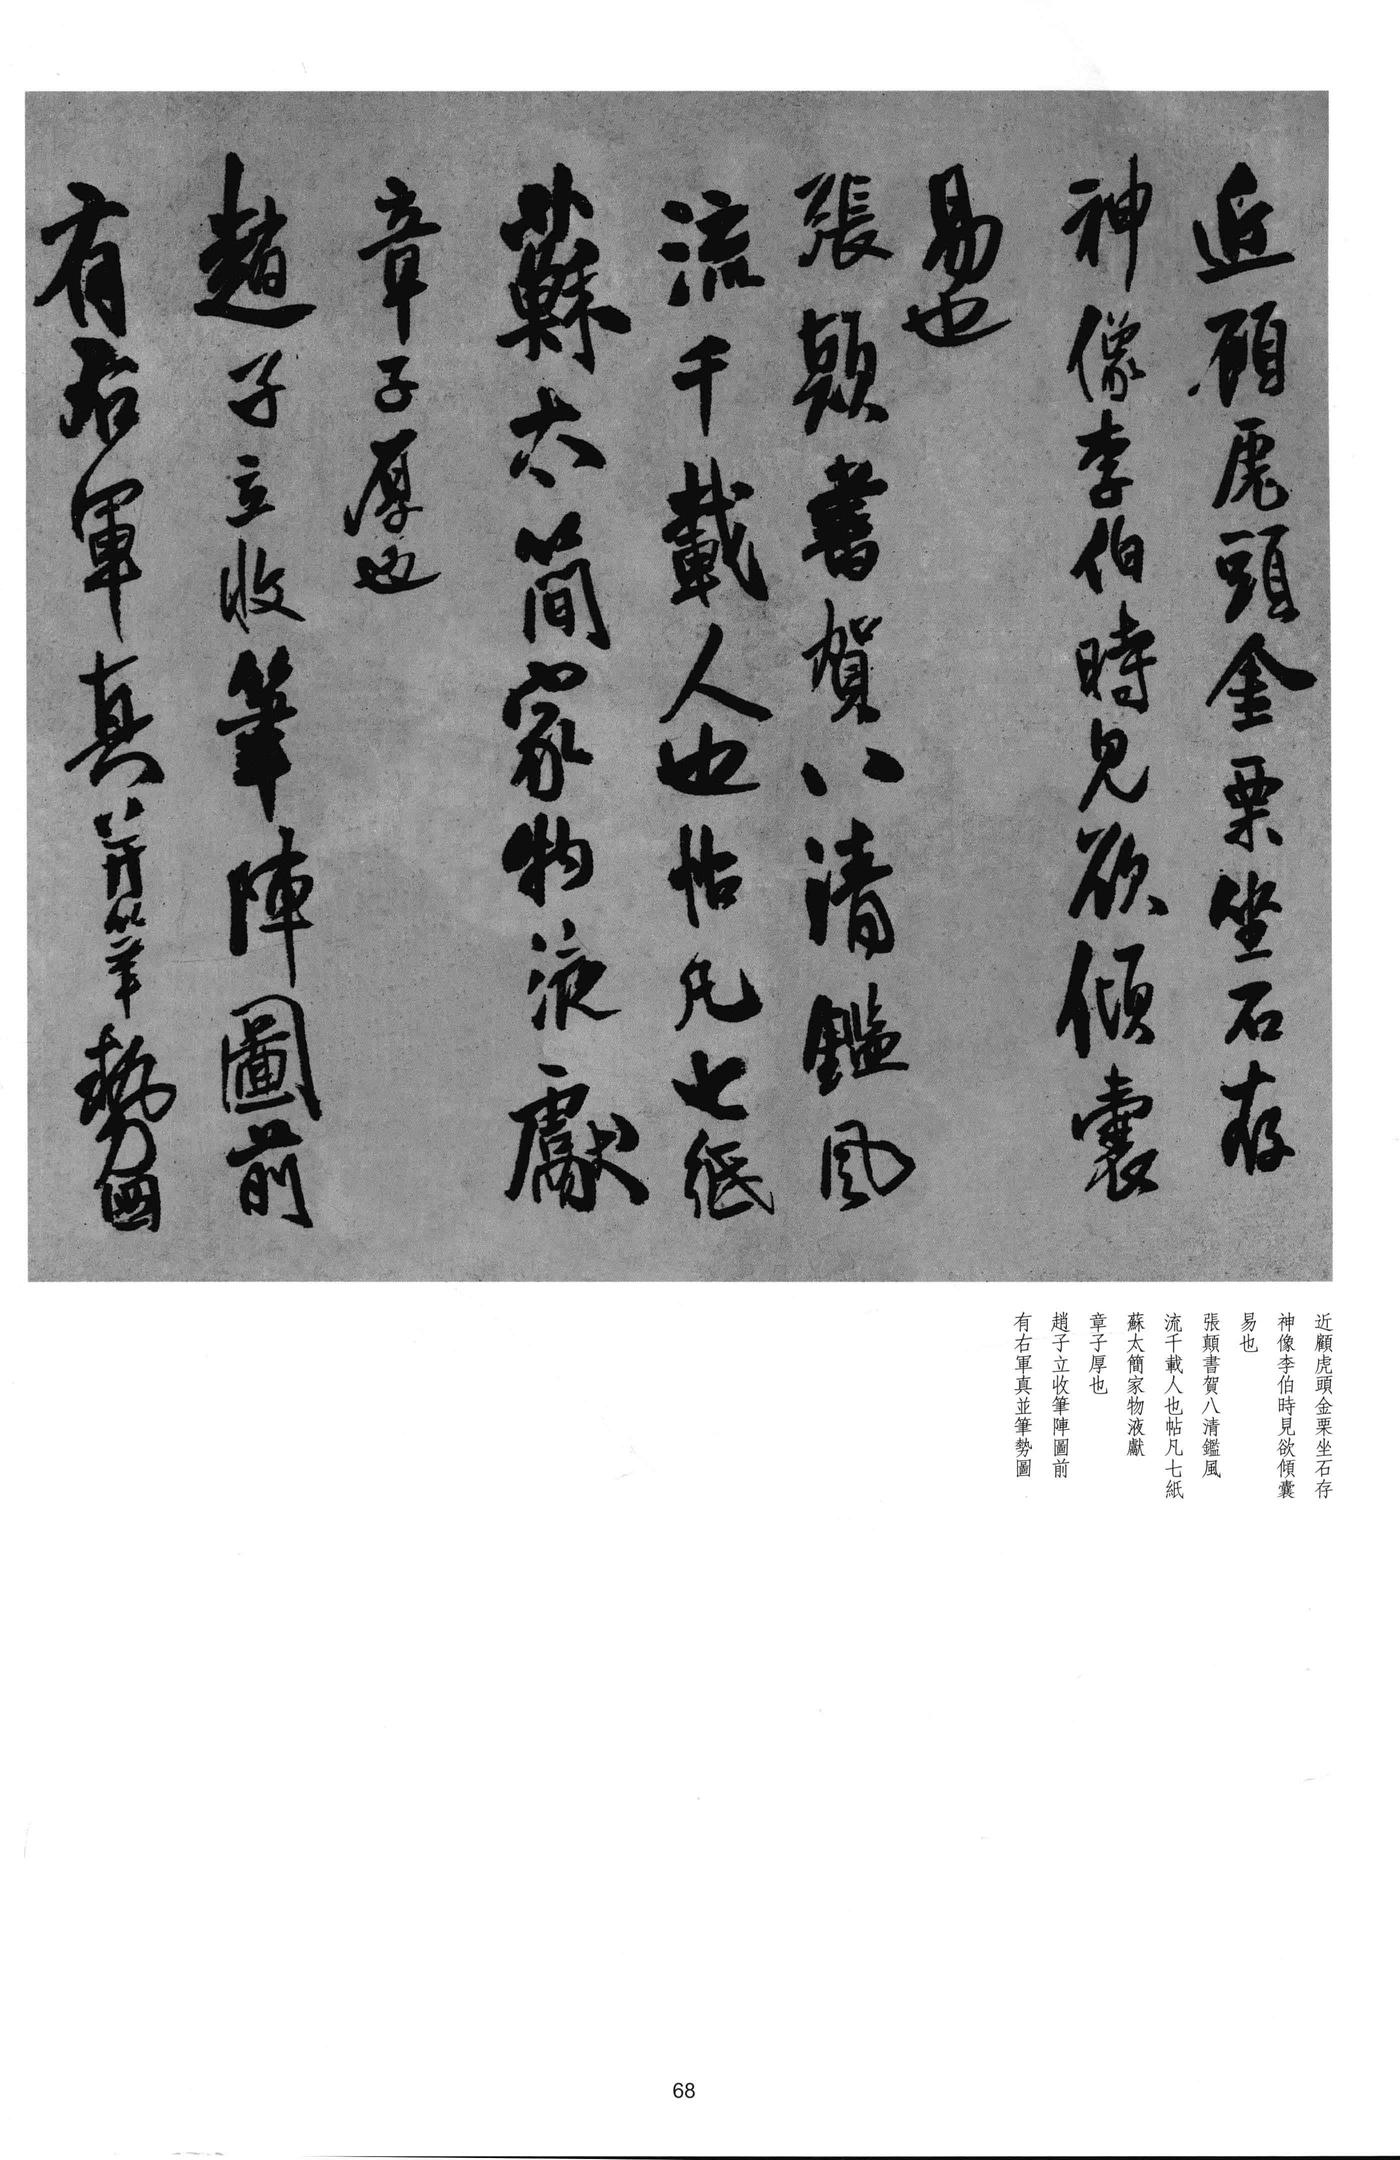 近顧虎頭金粟坐石存
神像李伯時見欲傾囊
易也
張顛書賀八清鑑風
流千載人也帖凡七紙
蘇太簡家物液獻
章子厚也
趙子立收筆陣圖前
有右軍真并筆勢圖
近顧虎頭金栗坐石存
神像李伯時見欲傾囊
易也
張顛書賀八清鑑風
流千載人也帖凡七紙
蘇太簡家物液獻
章子厚也
趙子立收筆陣圖前
有右軍真並筆勢圖
68